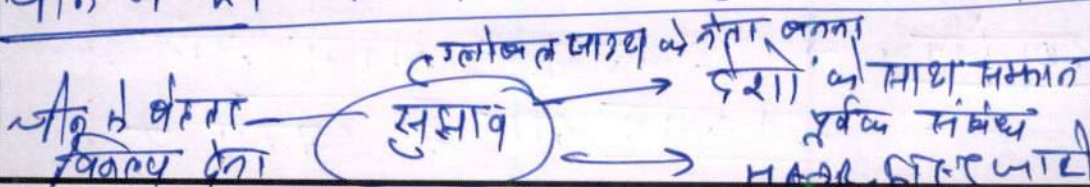 ग्लोबल साउथ के नेता बनना
चीन से बेहतर
विकल्प देना
सुझाव
देशों के साथ सम्मान
पूर्वक संबंध